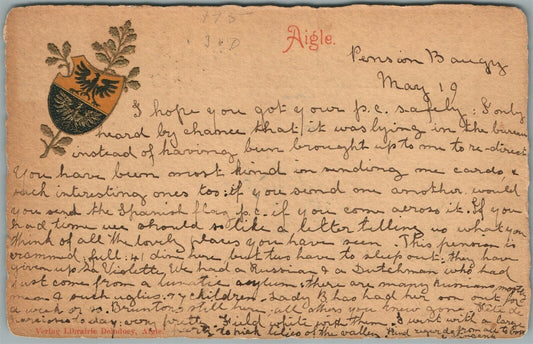 175
Aigle.
Pension Baugy
May 19
I hope you got your p.c. safely; I only
heard by chance that it was lying in the bureau
instead of having been brought up to me to re-direct
You have been most kind in sending me cards, &
such interesting ones too: if you send one another, would
you send the Spanish flag p.c. if you come across it. If you
had time we should so like a letter telling us what you
think of all the lovely places you have seen. This pension is
crammed full: 41 dine here but two have to sleep out; they have
given up the Violette. We had a Russian & a Dutchman who had
just come from a lunatic asylum. There are many Russians mostly
men & such ugly children. Lady B has had her son out for
a week or so. Brunton still here, all others you knew gone. Fête de
to day very pretty. Field white with them. I went with a
to pick lilies of the valley. Kind regards from all to
Verlag Librairie Deladoey, Aigle.